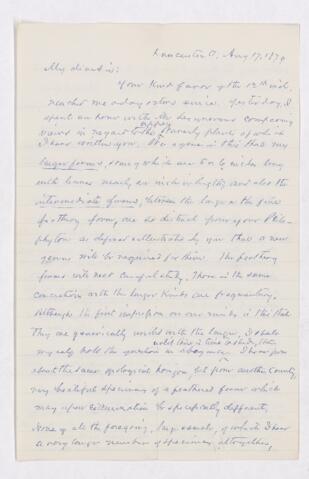 Lancaster O, Aug 17, 1874
My dear Sir:
Your kind favor of the 12th inst,
reached me a day or two since. Yesterday, I
spent an hour with Mr Lesquereux comparing
views in regard to the plants of which
I have written you. We agree in this that my
larger forms, some of which are 5 or 6 inches long
with leaves nearly an inch in length, and also the
intermediate forms, between the larger & the fine
feathery form, are so distinct from your Psilo-
phyton as defined & illustrated by you that a new
genus will be required for them. The feathery
forms will need careful study. Those in the same
concretion with the larger kinds are fragmentary.
Although the first impression on our minds is that
They are generically united with the larger, I shall
until there is time to study them
myself hold the question in abeyance. I have from
about the same geological horizon, but from another County,
very beautiful specimens of a feathered form which
may upon examination be specifically different.
None of all the foregoing, large & small, of which I have
a very large number of specimens altogether,